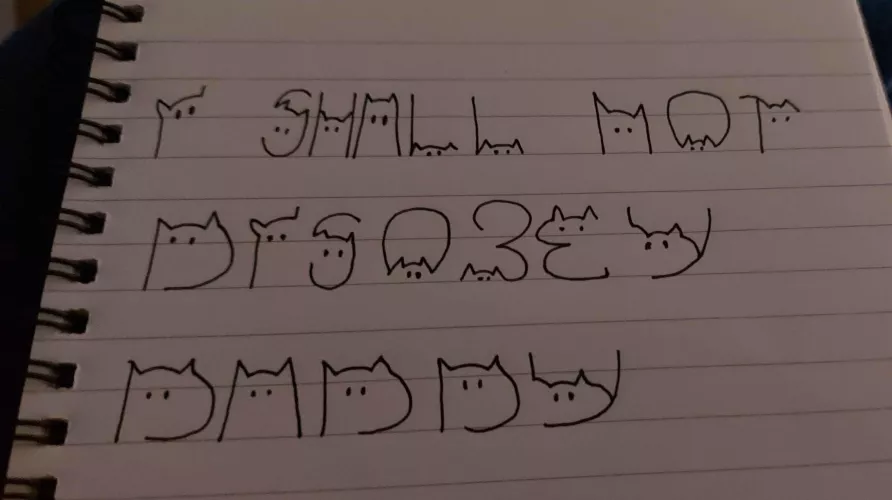 I SHALL NOT
DISOBEY
DADDY